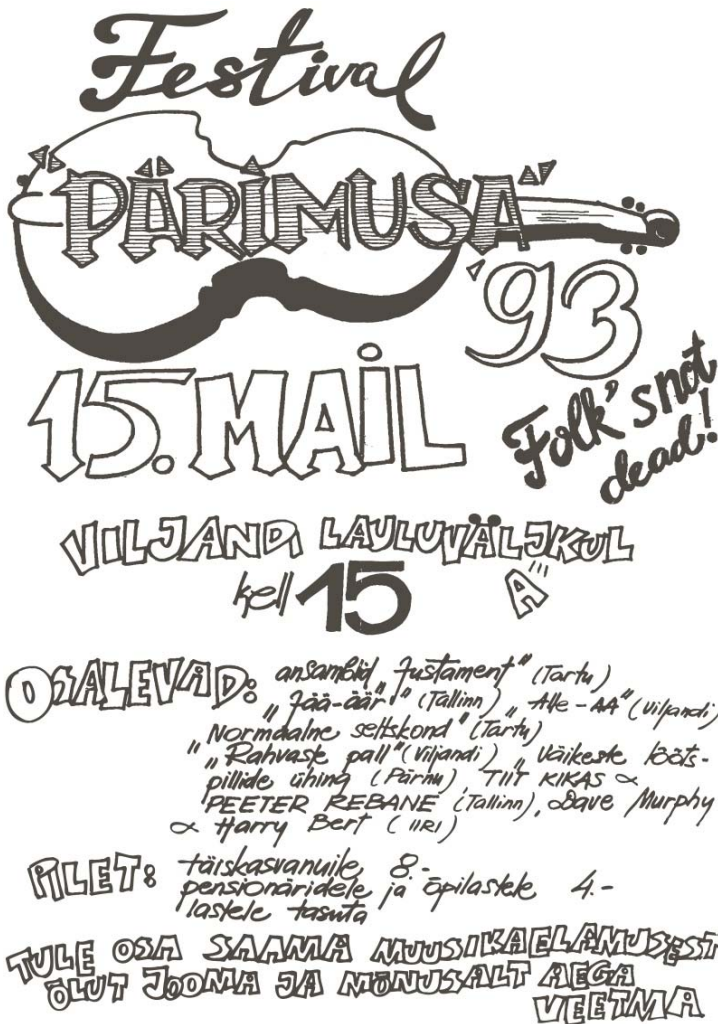 Festival
"PÄRIMUSA"
'93
15. MAIL
Folk's not
dead!
VILJANDI LAULUVÄLJKUL
A
kell 15
OSALEVAD: ansamblid „Justament" (Tartu)
„Jää-äär" (Tallinn) „Alle-AA" (Viljandi)
„Normaalne seltskond" (Tartu)
„Rahvaste pall" (Viljandi) „Väikeste lõõts-
pillide ühing (Pärnu), TIIT KIKAS &
PEETER REBANE (Tallinn), Dave Murphy
& Harry Bert (IIRI)
PILET: täiskasvanuile 8.-
pensionäridele ja õpilastele 4.-
lastele tasuta
TULE OSA SAAMA MUUSIKAELAMUSEST
ÕLUT JOOMA JA MÕNUSALT AEGA
VEETMA